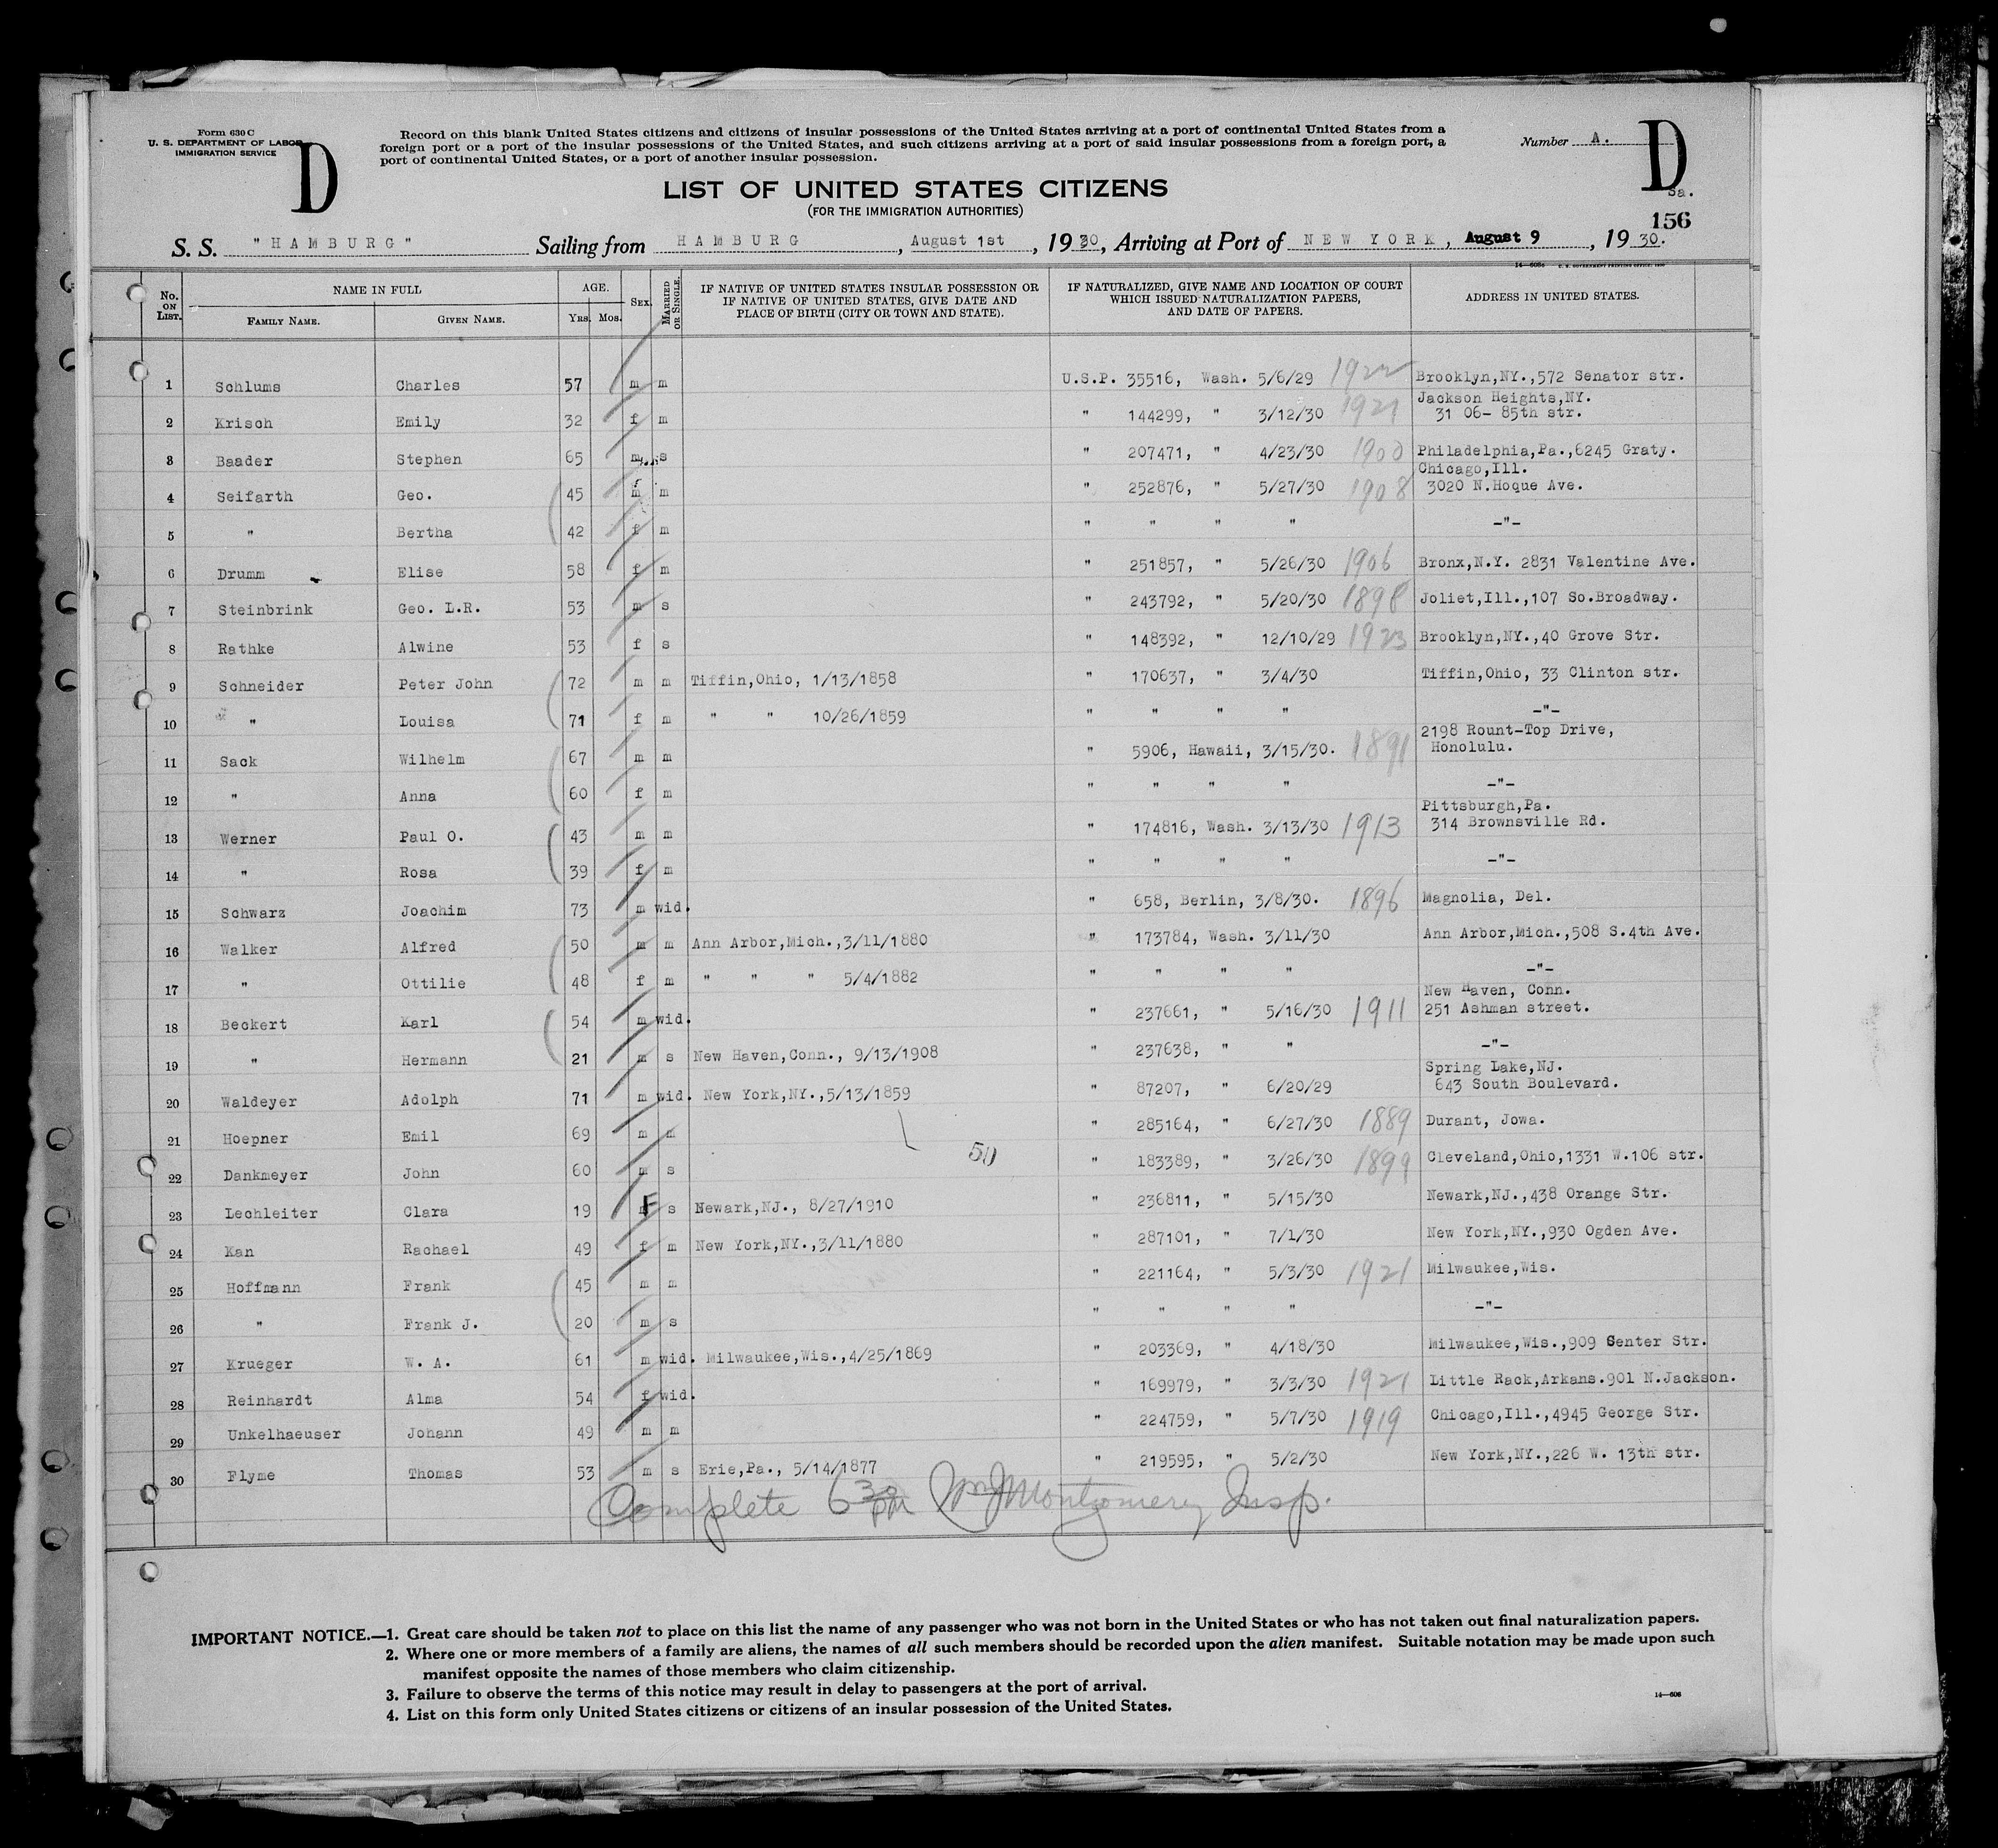 Form 630 C
U. S. DEPARTMENT OF LABOR
IMMIGRATION SERVICE
D
Record on this blank United States citizens and citizens of insular possessions of the United States arriving at a port of continental United States from a
foreign port or a port of the insular possessions of the United States, and such citizens arriving at a port of said insular possessions from a foreign port, a
port of continental United States, or a port of another insular possession.
Number A.
D
Sa.
LIST OF UNITED STATES CITIZENS
(FOR THE IMMIGRATION AUTHORITIES)
156
S. S. "HAMBURG" Sailing from HAMBURG, August 1st, 1930, Arriving at Port of NEW YORK, August 9, 1930.
No. ON LIST. NAME IN FULL FAMILY NAME. GIVEN NAME. AGE. YRS. MOS. SEX. MARRIED OR SINGLE. IF NATIVE OF UNITED STATES INSULAR POSSESSION OR IF NATIVE OF UNITED STATES, GIVE DATE AND PLACE OF BIRTH (CITY OR TOWN AND STATE). IF NATURALIZED, GIVE NAME AND LOCATION OF COURT WHICH ISSUED NATURALIZATION PAPERS, AND DATE OF PAPERS. ADDRESS IN UNITED STATES.
1 Schlums Charles 57 m m U.S.P. 35516, Wash. 5/6/29 1922 Brooklyn,NY.,572 Senator str.
2 Krisch Emily 32 f m " 144299, " 3/12/30 1921 Jackson Heights,NY. 31 06- 85th str.
3 Baader Stephen 65 m s " 207471, " 4/23/30 1900 Philadelphia,Pa.,6245 Graty.
4 Seifarth Geo. 45 m m " 252876, " 5/27/30 1908 Chicago,Ill. 3020 N.Hoque Ave.
5 " Bertha 42 f m " " " " -"-
6 Drumm Elise 58 f m " 251857, " 5/26/30 1906 Bronx,N.Y. 2831 Valentine Ave.
7 Steinbrink Geo. L.R. 53 m s " 243792, " 5/20/30 1898 Joliet,Ill.,107 So.Broadway.
8 Rathke Alwine 53 f s " 148392, " 12/10/29 1923 Brooklyn,NY.,40 Grove Str.
9 Schneider Peter John 72 m m Tiffin,Ohio, 1/13/1858 " 170637, " 3/4/30 Tiffin,Ohio, 33 Clinton str.
10 " Louisa 71 f m " " 10/26/1859 " " " " -"-
11 Sack Wilhelm 67 m m " 5906, Hawaii, 3/15/30. 1891 2198 Rount-Top Drive, Honolulu.
12 " Anna 60 f m " " " " -"-
13 Werner Paul O. 43 m m " 174816, Wash. 3/13/30 1913 Pittsburgh,Pa. 314 Brownsville Rd.
14 " Rosa 39 f m " " " " -"-
15 Schwarz Joachim 73 m wid. " 658, Berlin, 3/8/30. 1896 Magnolia, Del.
16 Walker Alfred 50 m m Ann Arbor,Mich.,3/11/1880 " 173784, Wash. 3/11/30 Ann Arbor,Mich.,508 S.4th Ave.
17 " Ottilie 48 f m " " " 5/4/1882 " " " " -"-
18 Beckert Karl 54 m wid. " 237661, " 5/16/30 1911 New Haven, Conn. 251 Ashman street.
19 " Hermann 21 m s New Haven,Conn., 9/13/1908 " 237638, " " -"-
20 Waldeyer Adolph 71 m wid. New York,NY.,5/13/1859 " 87207, " 6/20/29 Spring Lake,NJ. 643 South Boulevard.
21 Hoepner Emil 69 m m " 285164, " 6/27/30 1889 Durant, Jowa.
50
22 Dankmeyer John 60 m s " 183389, " 3/26/30 1899 Cleveland,Ohio,1331 W.106 str.
23 Lechleiter Clara 19 F s Newark,NJ., 8/27/1910 " 236811, " 5/15/30 Newark,NJ.,438 Orange Str.
24 Kan Rachael 49 f m New York,NY.,3/11/1880 " 287101, " 7/1/30 New York,NY.,930 Ogden Ave.
25 Hoffmann Frank 45 m m " 221164, " 5/3/30 1921 Milwaukee,Wis.
26 " Frank J. 20 m s " " " " -"-
27 Krueger W. A. 61 m wid. Milwaukee,Wis.,4/25/1869 " 203369, " 4/18/30 Milwaukee,Wis.,909 Center Str.
28 Reinhardt Alma 54 f wid. " 169979, " 3/3/30 1921 Little Rack,Arkans.901 N.Jackson.
29 Unkelhaeuser Johann 49 m m " 224759, " 5/7/30 1919 Chicago,Ill.,4945 George Str.
30 Flyme Thomas 53 m s Erie,Pa., 5/14/1877 " 219595, " 5/2/30 New York,NY.,226 W. 13th str.
Complete 6 30 PM Wm J Montgomery Insp.
IMPORTANT NOTICE.—1. Great care should be taken not to place on this list the name of any passenger who was not born in the United States or who has not taken out final naturalization papers.
2. Where one or more members of a family are aliens, the names of all such members should be recorded upon the alien manifest. Suitable notation may be made upon such
manifest opposite the names of those members who claim citizenship.
3. Failure to observe the terms of this notice may result in delay to passengers at the port of arrival.
4. List on this form only United States citizens or citizens of an insular possession of the United States.
14—608